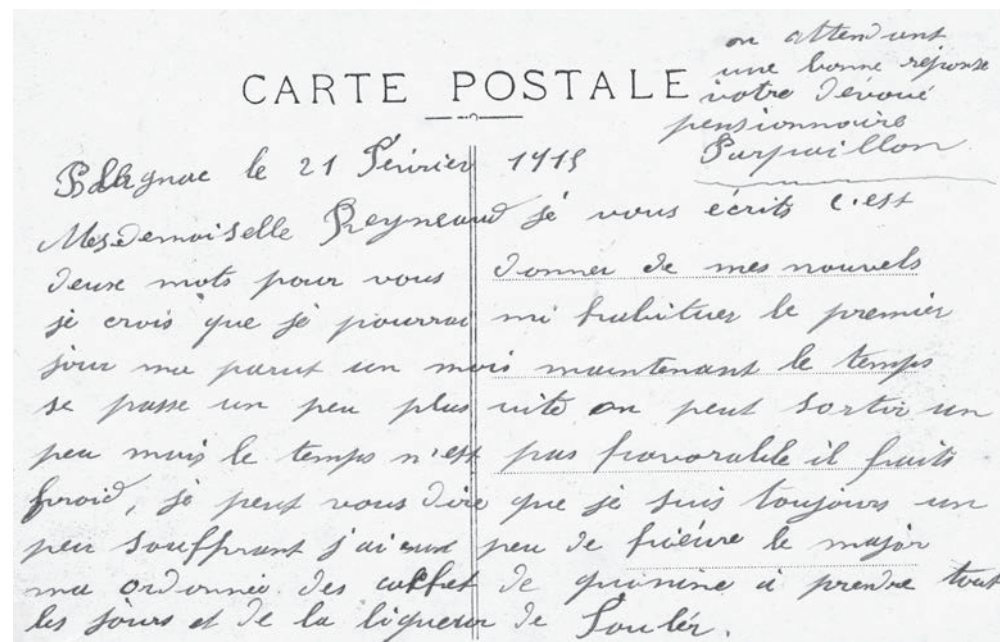 en attendant
une bonne réponse
CARTE POSTALE
votre dévoué
pensionnaire
Parpaillon
le 21 Février 1915
Mesdemoiselle Reyneaud je vous écrits c'est
deux mots pour vous donner de mes nouvels
je crois que je pourrai mi habituer le premier
jour ma parut un mois maintenant le temps
se passe un peu plus vite on peut sortir un
peu mais le temps n'est pas favorable il faits
froid, je peut vous dire que je suis toujours un
peu souffrant j'ai eux peu de fiéure le major
ma ordonnée des de quinine à prendre tout
les jours et de la liqueur de